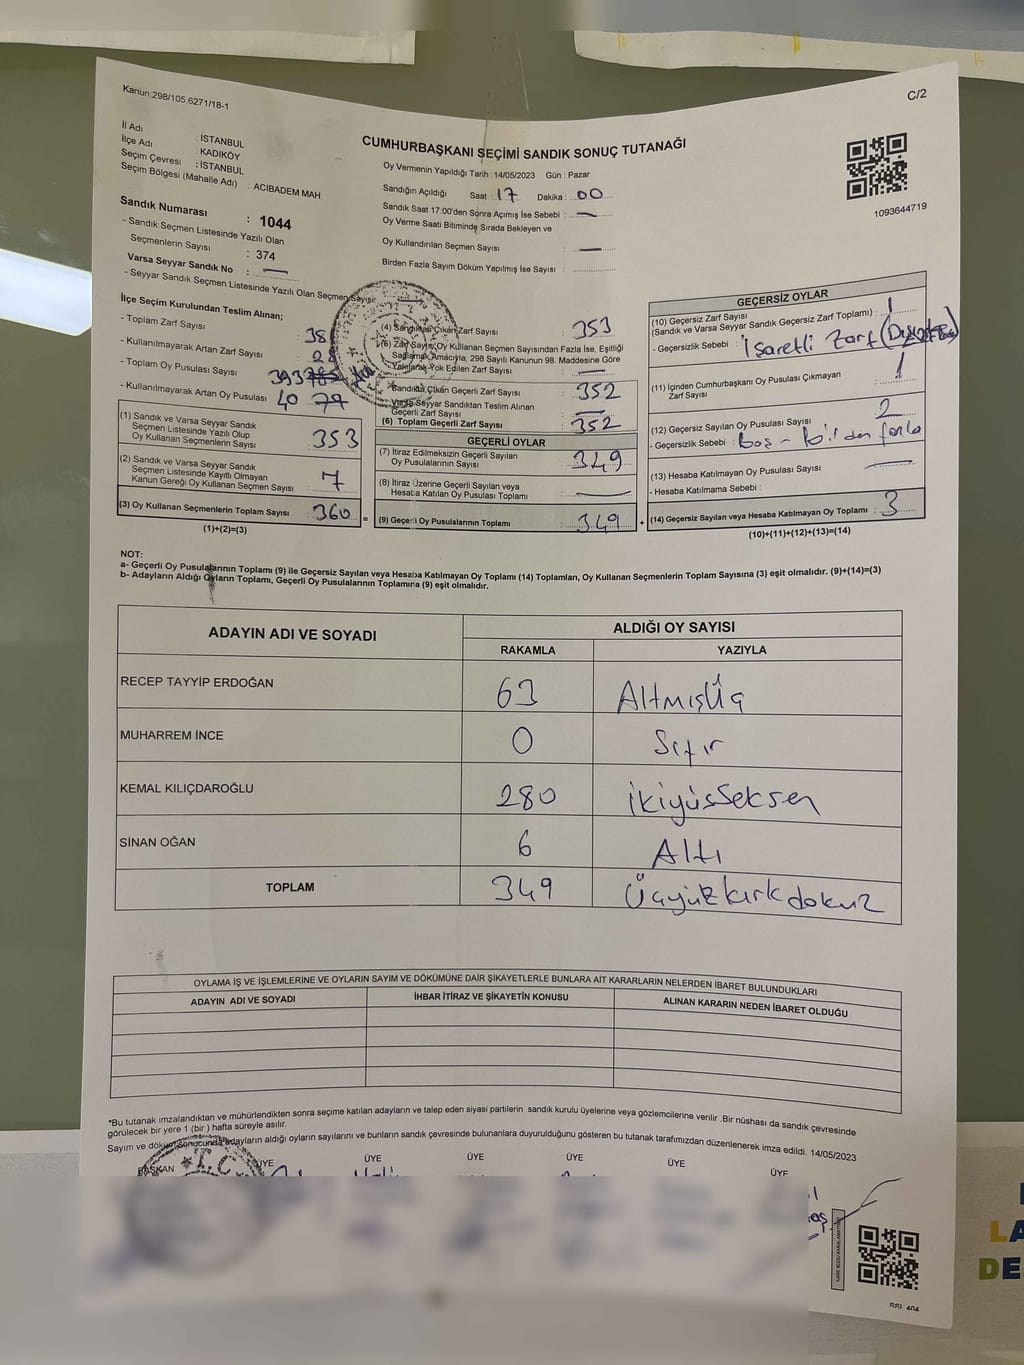 Kanun:298/105,6271/18-1
C/2
İl Adı : İSTANBUL
İlçe Adı : KADIKÖY
Seçim Çevresi : İSTANBUL
Seçim Bölgesi (Mahalle Adı) : ACIBADEM MAH.
CUMHURBAŞKANI SEÇİMİ SANDIK SONUÇ TUTANAĞI
Oy Vermenin Yapıldığı Tarih :14/05/2023 Gün : Pazar
Sandığın Açıldığı Saat : 17 Dakika : 00
Sandık Saat 17:00'den Sonra Açılmış İse Sebebi : —
Oy Verme Saati Bitiminde Sırada Bekleyen ve
Oy Kullandırılan Seçmen Sayısı : —
Birden Fazla Sayım Döküm Yapılmış İse Sayısı :
1093644719
Sandık Numarası : 1044
- Sandık Seçmen Listesinde Yazılı Olan
Seçmenlerin Sayısı : 374
Varsa Seyyar Sandık No : —
- Seyyar Sandık Seçmen Listesinde Yazılı Olan Seçmen Sayısı:
İlçe Seçim Kurulundan Teslim Alınan;
- Toplam Zarf Sayısı
- Kullanılmayarak Artan Zarf Sayısı
- Toplam Oy Pusulası Sayısı 393
- Kullanılmayarak Artan Oy Pusulası 40
(1) Sandık ve Varsa Seyyar Sandık
Seçmen Listesinde Yazılı Olup
Oy Kullanan Seçmenlerin Sayısı : 353
(2) Sandık ve Varsa Seyyar Sandık
Seçmen Listesinde Kayıtlı Olmayan
Kanun Gereği Oy Kullanan Seçmen Sayısı : 7
(3) Oy Kullanan Seçmenlerin Toplam Sayısı : 360 =
(1)+(2)=(3)
(4) Sandıktan Çıkan Zarf Sayısı : 353
Zarf Sayısı Oy Kullanan Seçmen Sayısından Fazla İse, Eşitliği
Sağlamak Amacıyla, 298 Sayılı Kanunun 98. Maddesine Göre
Yakılarak Yok Edilen Zarf Sayısı : —
Sandıkta Çıkan Geçerli Zarf Sayısı : 352
Varsa Seyyar Sandıktan Teslim Alınan
Geçerli Zarf Sayısı : —
(6) Toplam Geçerli Zarf Sayısı : 352
GEÇERLİ OYLAR
(7) İtiraz Edilmeksizin Geçerli Sayılan
Oy Pusulalarının Sayısı : 349
(8) İtiraz Üzerine Geçerli Sayılan veya
Hesaba Katılan Oy Pusulası Toplamı : —
(9) Geçerli Oy Pusulalarının Toplamı : 349 +
GEÇERSİZ OYLAR
(10) Geçersiz Zarf Sayısı
(Sandık ve Varsa Seyyar Sandık Geçersiz Zarf Toplamı) : 1
- Geçersizlik Sebebi : İşaretli Zarf
(11) İçinden Cumhurbaşkanı Oy Pusulası Çıkmayan
Zarf Sayısı : 1
(12) Geçersiz Sayılan Oy Pusulası Sayısı : 2
- Geçersizlik Sebebi : boş - bir'den fazla
(13) Hesaba Katılmayan Oy Pusulası Sayısı : —
- Hesaba Katılmama Sebebi :
(14) Geçersiz Sayılan veya Hesaba Katılmayan Oy Toplamı : 3
(10)+(11)+(12)+(13)=(14)
NOT:
a- Geçerli Oy Pusulalarının Toplamı (9) ile Geçersiz Sayılan veya Hesaba Katılmayan Oy Toplamı (14) Toplamları, Oy Kullanan Seçmenlerin Toplam Sayısına (3) eşit olmalıdır. (9)+(14)=(3)
b- Adayların Aldığı Oyların Toplamı, Geçerli Oy Pusulalarının Toplamına (9) eşit olmalıdır.
ADAYIN ADI VE SOYADI
ALDIĞI OY SAYISI
RAKAMLA YAZIYLA
RECEP TAYYİP ERDOĞAN 63 AltmışÜç
MUHARREM İNCE 0 Sıfır
KEMAL KILIÇDAROĞLU 280 ikiyüsSeksen
SİNAN OĞAN 6 Altı
TOPLAM 349 Üçyüzkırkdokuz
OYLAMA İŞ VE İŞLEMLERİNE VE OYLARIN SAYIM VE DÖKÜMÜNE DAİR ŞİKAYETLERLE BUNLARA AİT KARARLARIN NELERDEN İBARET BULUNDUKLARI
ADAYIN ADI VE SOYADI İHBAR İTİRAZ VE ŞİKAYETİN KONUSU ALINAN KARARIN NEDEN İBARET OLDUĞU
*Bu tutanak imzalandıktan ve mühürlendikten sonra seçime katılan adayların ve talep eden siyasi partilerin sandık kurulu üyelerine veya gözlemcilerine verilir .Bir nüshası da sandık çevresinde
görülecek bir yere 1 (bir ) hafta süreyle asılır.
Sayım ve döküm sonucunda adayların aldığı oyların sayılarını ve bunların sandık çevresinde bulunanlara duyurulduğunu gösteren bu tutanak tarafımızdan düzenlenerek imza edildi. 14/05/2023
BAŞKAN ÜYE ÜYE ÜYE ÜYE ÜYE ÜYE
T.C.
LA
DE